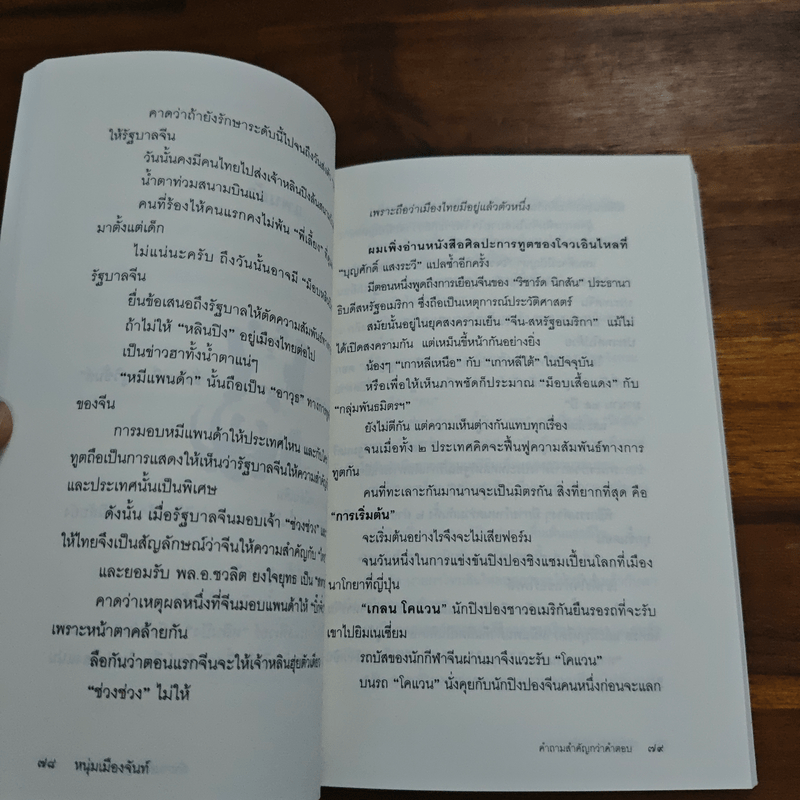 คาดว่าถ้ายังรักษาระดับนี้ไปจนถึงวันส่ง
ให้รัฐบาลจีน
วันนั้นคงมีคนไทยไปส่งเจ้าหลินปิงล้นสนามบิน
น้ำตาท่วมสนามบินแน่
คนที่ร้องไห้คนแรกคงไม่พ้น “พี่เลี้ยง”
มาตั้งแต่เด็ก
ไม่แน่นะครับ ถึงวันนั้นอาจมี
รัฐบาลจีน
ยื่นข้อเสนอถึงรัฐบาลให้ตัดความสัมพันธ์
ถ้าไม่ให้ “หลินปิง” อยู่เมืองไทยต่อไป
เป็นข่าวฮาทั้งน้ำตาแน่ๆ
“หมีแพนด้า” นั้นถือเป็น “อาวุธ”
ของจีน
การมอบหมีแพนด้าให้ประเทศไหน
ทูตถือเป็นการแสดงให้เห็นว่ารัฐบาลจีนให้ความสำคัญ
และประเทศนั้นเป็นพิเศษ
ดังนั้น เมื่อรัฐบาลจีนมอบเจ้า “ช่วงช่วง”
ให้ไทยจึงเป็นสัญลักษณ์ว่าจีนให้ความสำคัญกับ
และยอมรับ พล.อ.ชวลิต ยงใจยุทธ เป็น
คาดว่าเหตุผลหนึ่งที่จีนมอบแพนด้าให้
เพราะหน้าตาคล้ายกัน
ลือกันว่าตอนแรกจีนจะให้เจ้าหลินฮุ่ยตัวเดียว
“ช่วงช่วง” ไม่ให้
๗๘ หนุ่มเมืองจันท์
เพราะถือว่าเมืองไทยมีอยู่แล้วตัวหนึ่ง
ผมเพิ่งอ่านหนังสือศิลปะการทูตของโจวเอินไหลที่
“บุญศักดิ์ แสงระวี” แปลซ้ำอีกครั้ง
มีตอนหนึ่งพูดถึงการเยือนจีนของ “ริชาร์ด นิกสัน” ประธานา
ธิบดีสหรัฐอเมริกา ซึ่งถือเป็นเหตุการณ์ประวัติศาสตร์
สมัยนั้นอยู่ในยุคสงครามเย็น “จีน-สหรัฐอเมริกา” แม้ไม่
ได้เปิดสงครามกัน แต่เหม็นขี้หน้ากันอย่างยิ่ง
น้องๆ “เกาหลีเหนือ” กับ “เกาหลีใต้” ในปัจจุบัน
หรือเพื่อให้เห็นภาพชัดก็ประมาณ “ม็อบเสื้อแดง” กับ
“กลุ่มพันธมิตรฯ”
ยังไม่ตีกัน แต่ความเห็นต่างกันแทบทุกเรื่อง
จนเมื่อทั้ง ๒ ประเทศคิดจะฟื้นฟูความสัมพันธ์ทางการ
ทูตกัน
คนที่ทะเลาะกันมานานจะเป็นมิตรกัน สิ่งที่ยากที่สุด คือ
“การเริ่มต้น”
จะเริ่มต้นอย่างไรจึงจะไม่เสียฟอร์ม
จนวันหนึ่งในการแข่งขันปิงปองชิงแชมเปี้ยนโลกที่เมือง
นาโกยาที่ญี่ปุ่น
“เกลน โคแวน” นักปิงปองชาวอเมริกันยืนรอรถที่จะรับ
เขาไปยิมเนเซี่ยม
รถบัสของนักกีฬาจีนผ่านมาจึงแวะรับ “โคแวน”
บนรถ “โคแวน” นั่งคุยกับนักปิงปองจีนคนหนึ่งก่อนจะแลก
คำถามสำคัญกว่าคำตอบ ๗๙